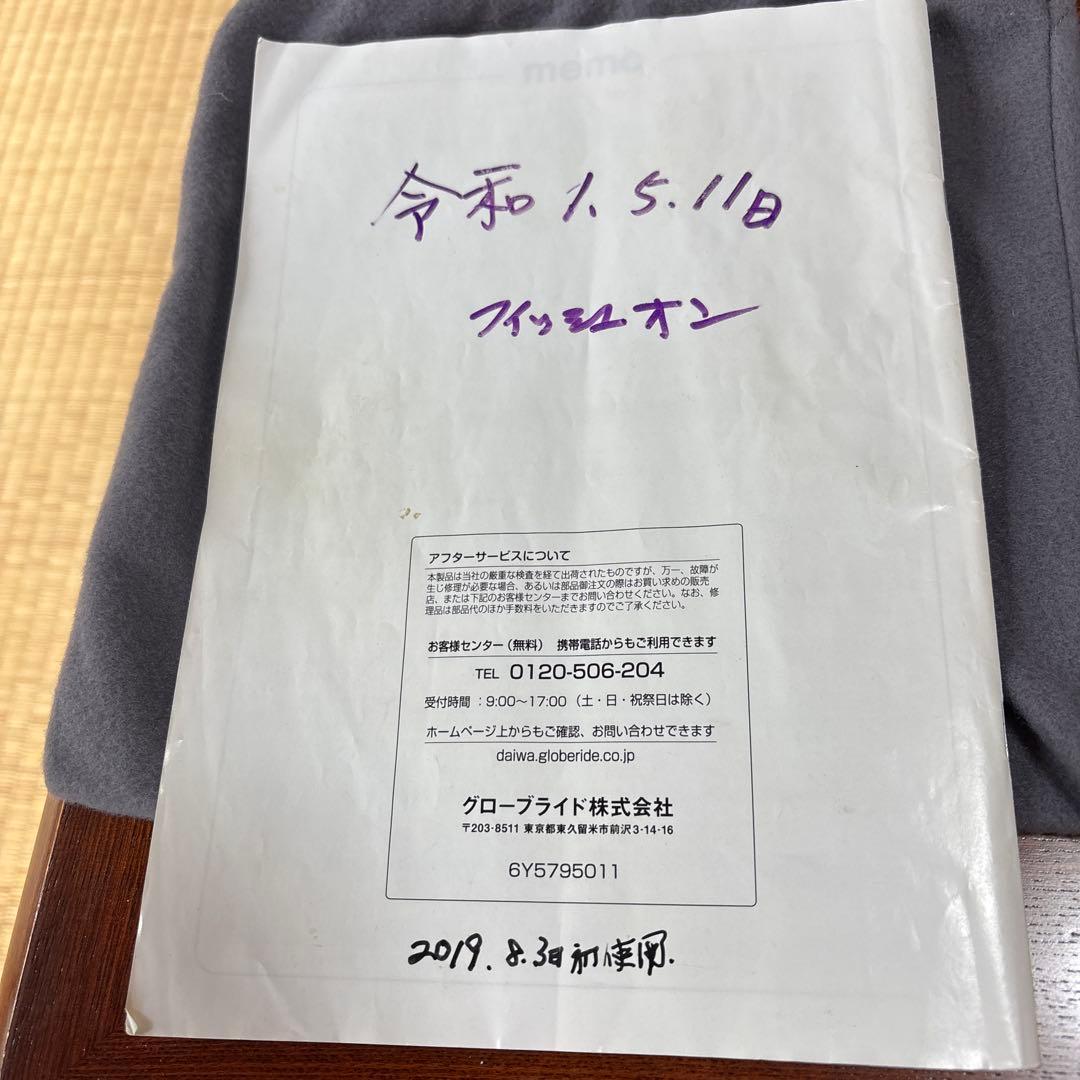 memo
令和1.5.11日
フィッシュオン
アフターサービスについて
本製品は当社の厳重な検査を経て出荷されたものですが、万一、故障が
生じ修理が必要な場合、あるいは部品御注文の際はお買い求めの販売
店、または下記のお客様センターまでお問い合わせください。なお、修
理品は部品代のほか手数料をいただきますのでご了承ください。
お客様センター（無料） 携帯電話からもご利用できます
TEL 0120-506-204
受付時間：9:00〜17:00（土・日・祝祭日は除く）
ホームページ上からもご確認、お問い合わせできます
daiwa.globeride.co.jp
グローブライド株式会社
〒203-8511 東京都東久留米市前沢3-14-16
6Y5795011
2019.8.3日初使用.